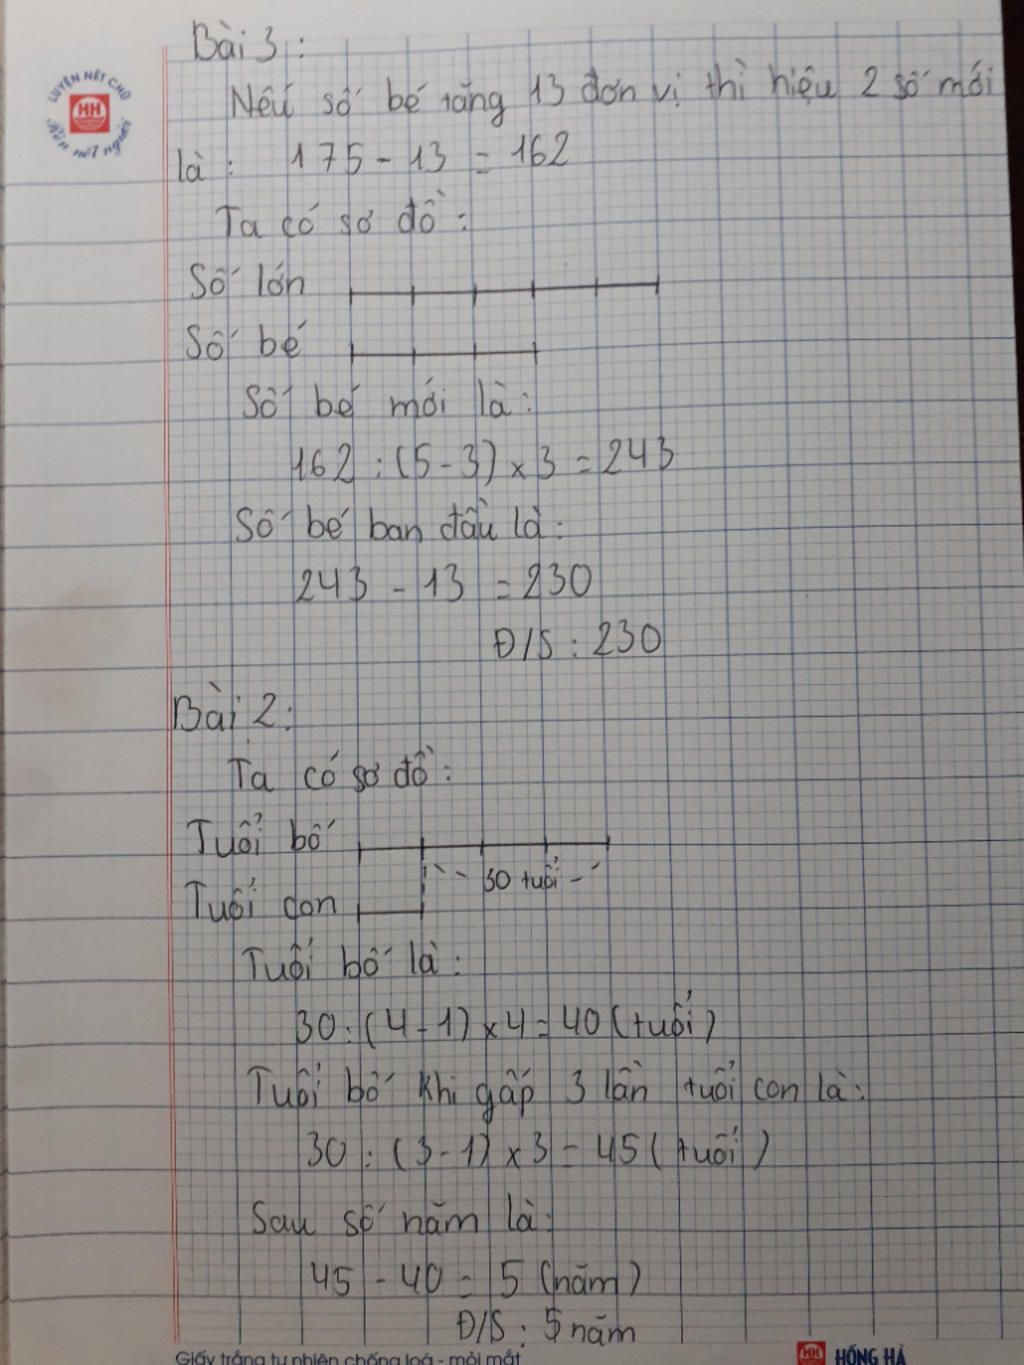 Bài 3:
LUYỆN NÉT CHỮ
HH
Rèn nết người
Nếu số bé tăng 13 đơn vị thì hiệu 2 số mới
là: 175 - 13 = 162
Ta có sơ đồ:
Số lớn
Số bé
Số bé mới là:
162 : (5 - 3) x 3 = 243
Số bé ban đầu là:
243 - 13 = 230
Đ/S : 230
Bài 2:
Ta có sơ đồ:
Tuổi bố
30 tuổi
Tuổi con
Tuổi bố là:
30 : (4 - 1) x 4 = 40 (tuổi)
Tuổi bố khi gấp 3 lần tuổi con là:
30 : (3 - 1) x 3 = 45 (tuổi)
Sau số năm là:
45 - 40 = 5 (năm)
Đ/S : 5 năm
Giấy trắng tự nhiên chống loá - mỏi mắt
HH HỒNG HÀ